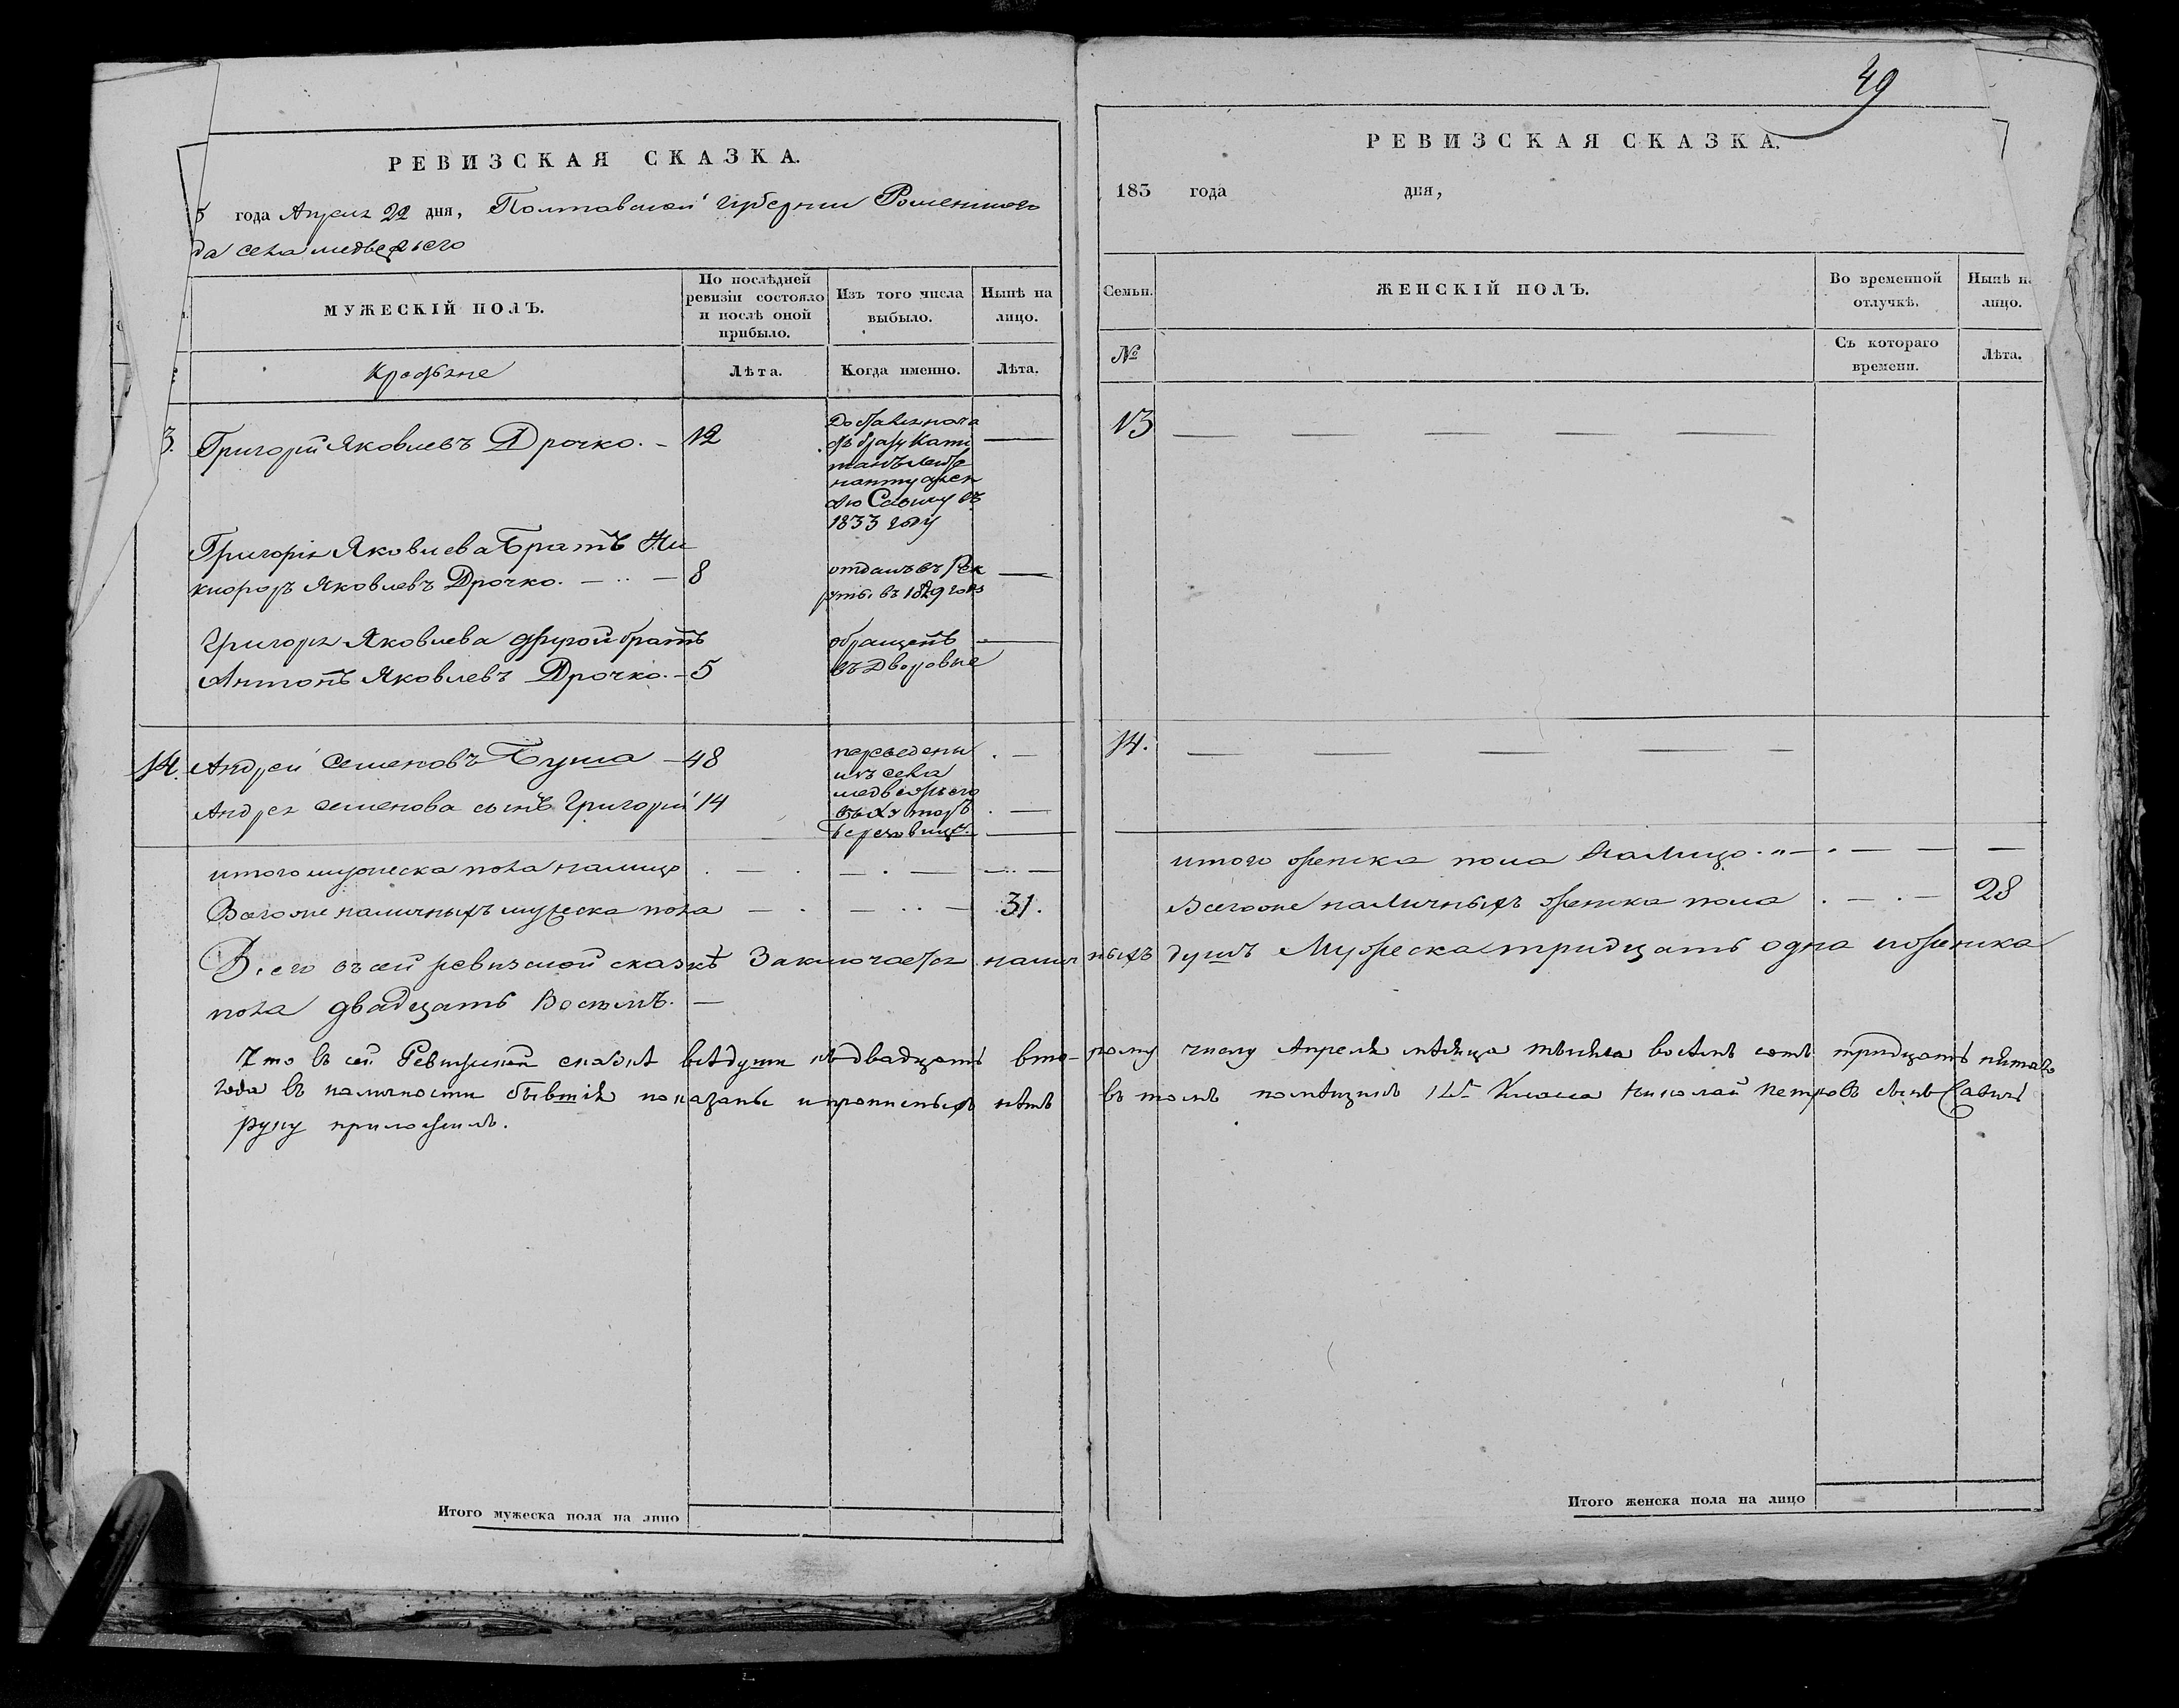 49
РЕВИЗСКАЯ СКАЗКА.
5 года Апреля 22 дня, Полтавской губернии Роменского
да села медвежьего
МУЖЕСКІЙ ПОЛЪ.
По послѣдней ревизіи состояло и послѣ оной прибыло.
Изъ того числа выбыло.
Нынѣ на лицо.
Лѣта.
Когда именно.
Лѣта.
3. Григорій Яковлевъ Дрочко. — 12
1833 году
Григорія Яковлева Братъ Ни
кифоръ Яковлевъ Дрочко. — 8 отданъ въ Рек
руты въ 1829 году
Григорія Яковлева другой братъ обращенъ
Антонъ Яковлевъ Дрочко. — 5 въ Дворовые
14. Андрей Семеновъ — 48 переведены
изъ села
Андрея Семенова сынъ Григорій 14 медвежьего
въ хуторъ
итого мужеска пола налицо
Всего же наличныхъ мужеска пола 31.
РЕВИЗСКАЯ СКАЗКА.
183 года дня,
Семьи.
ЖЕНСКІЙ ПОЛЪ.
Во временной отлучкѣ.
Нынѣ на лицо.
№
Съ котораго времени.
Лѣта.
13
14.
итого женска пола налицо
Всего же наличныхъ женска пола 28
Всего въ сей ревизской сказкѣ Заключается наличныхъ душъ Мужеска тридцать одна и женска
пола двадцать Восемь.
Что въ сей Ревизской сказкѣ всѣ души къ двадцать второму числу Апреля мѣсяца тысяча восемь сотъ тридцать пятаго
года въ наличности бывшія показаны и прописныхъ нѣтъ въ томъ помѣщикъ 14 Класса Николай Петровъ сынъ Савичъ
руку приложилъ.
Итого мужеска пола на лицо
Итого женска пола на лицо